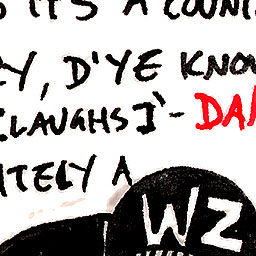 IT'S A COUN
Y, D'YE KNO
[LAUGHS] - DA
ITELY A
WZ